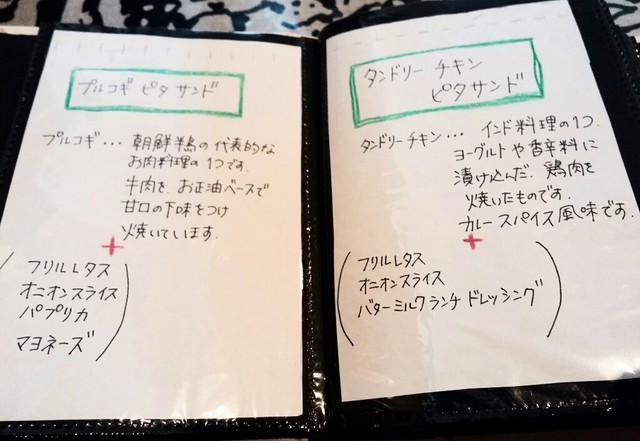 プルコギ ピタ サンド
プルコギ・・・ 朝鮮半島の代表的な
お肉料理の1つです。
牛肉を、お正油ベースで
甘口の下味をつけ
焼いています。
+
フリルレタス
オニオンスライス
パプリカ
マヨネーズ
タンドリー チキン
ピタサンド
タンドリーチキン・・・ インド料理の1つ.
ヨーグルトや香辛料に
漬け込んだ、鶏肉を
焼いたものです.
カレースパイス風味です.
+
フリルレタス
オニオンスライス
バターミルクランチ ドレッシング